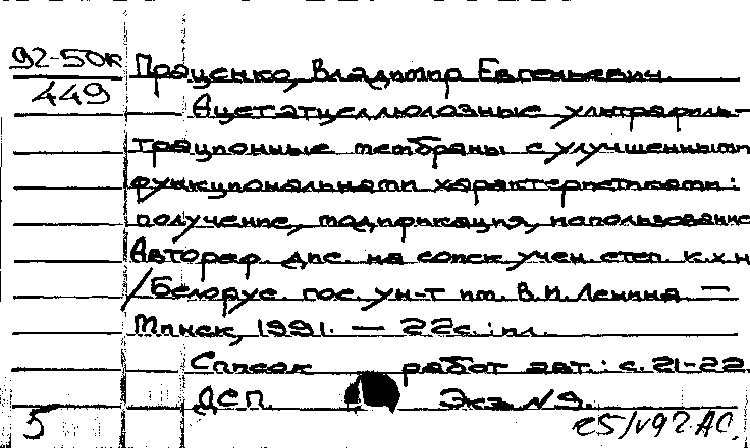 92-50к Праценко, Владимир Евгеньевич.
449 Ацетатцеллюлозные ультрафиль-
трационные мембраны с улучшенными
функциональными характеристиками:
получение, модификация, использование
Автореф. дис. на соиск учен. степ. к.х.н
/Белорус. гос. ун-т им. В.И. Ленина. —
Минск, 1991. — 22с.: ил.
Список работ авт.: с. 21-22.
ДСП. Экз. N 9.
5